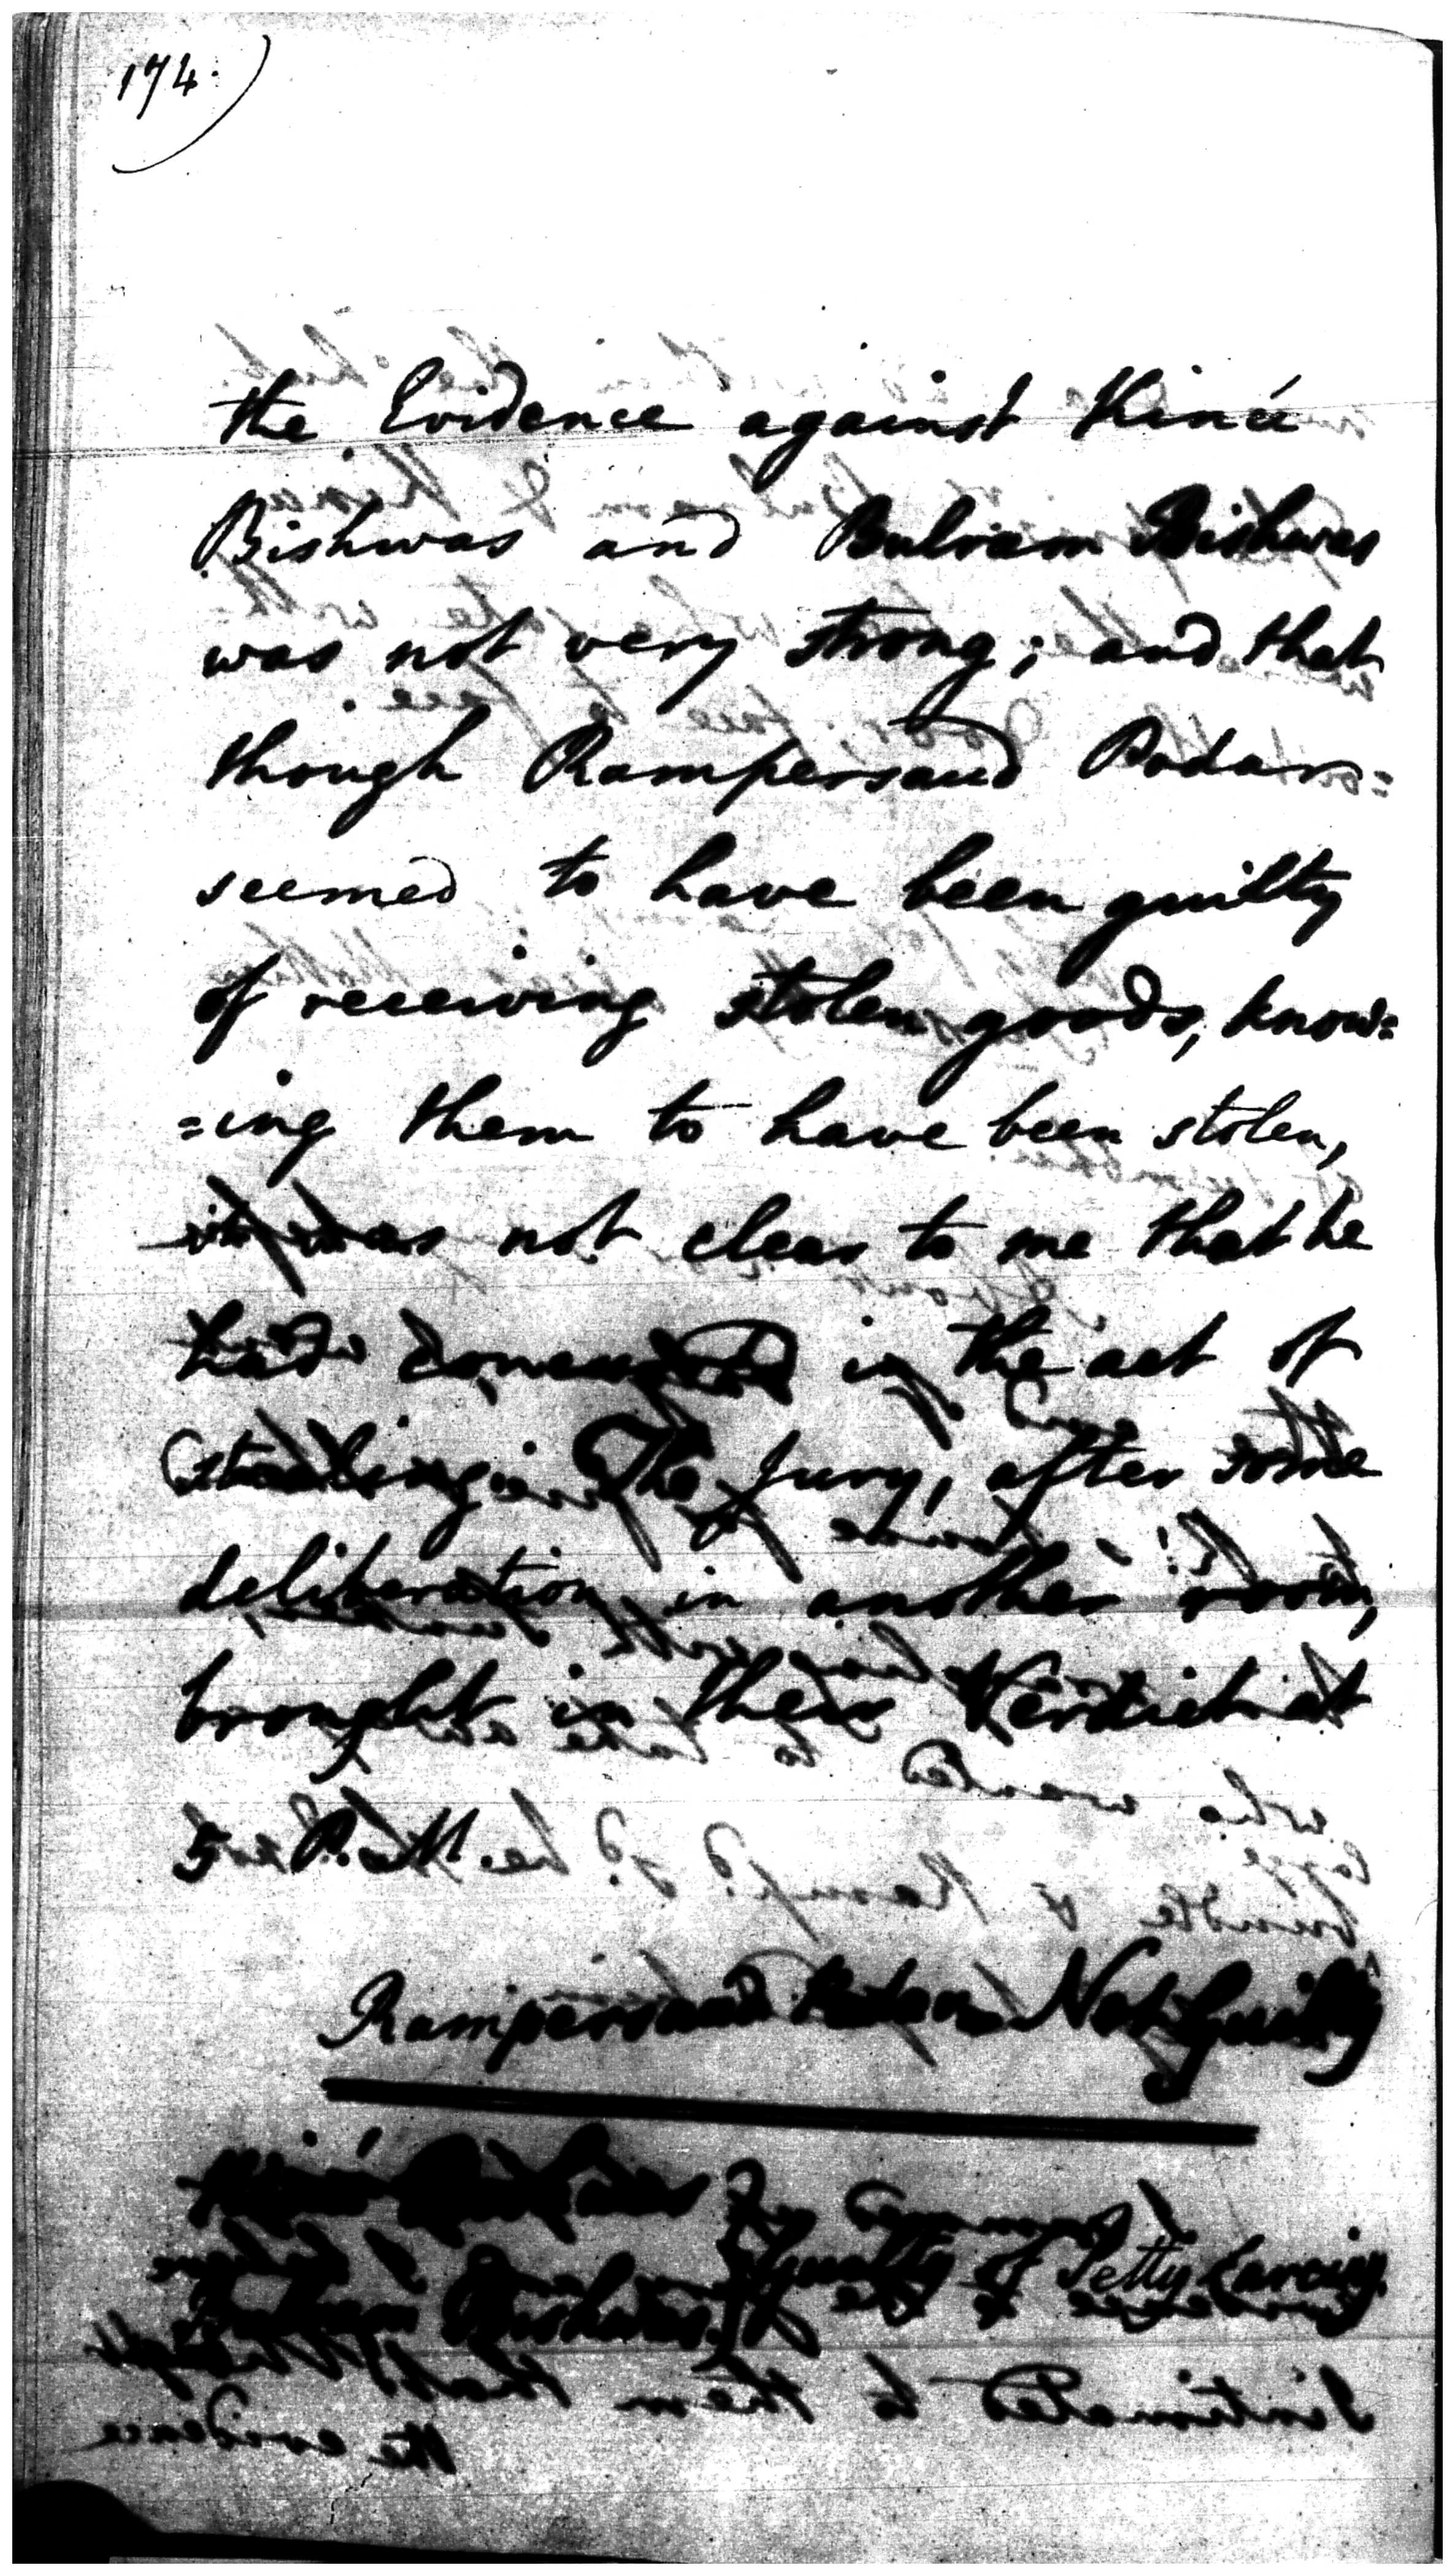 174.)
the Evidence against Kinú
Bishwas and Bulram Bishwas
was not very strong; and that
though Rampersaud Podar
seemed to have been guilty
of receiving stolen goods, know=
=ing them to have been stolen,
it was not clear to me that he
had concurred in the act of
stealing. The Jury, after some
deliberation in another room,
brought in their Verdict at
5 P.M.
Rampersaud Podar Not Guilty
Kinú Bishwas
Bulram Bishwas } guilty of Petty Larciny.